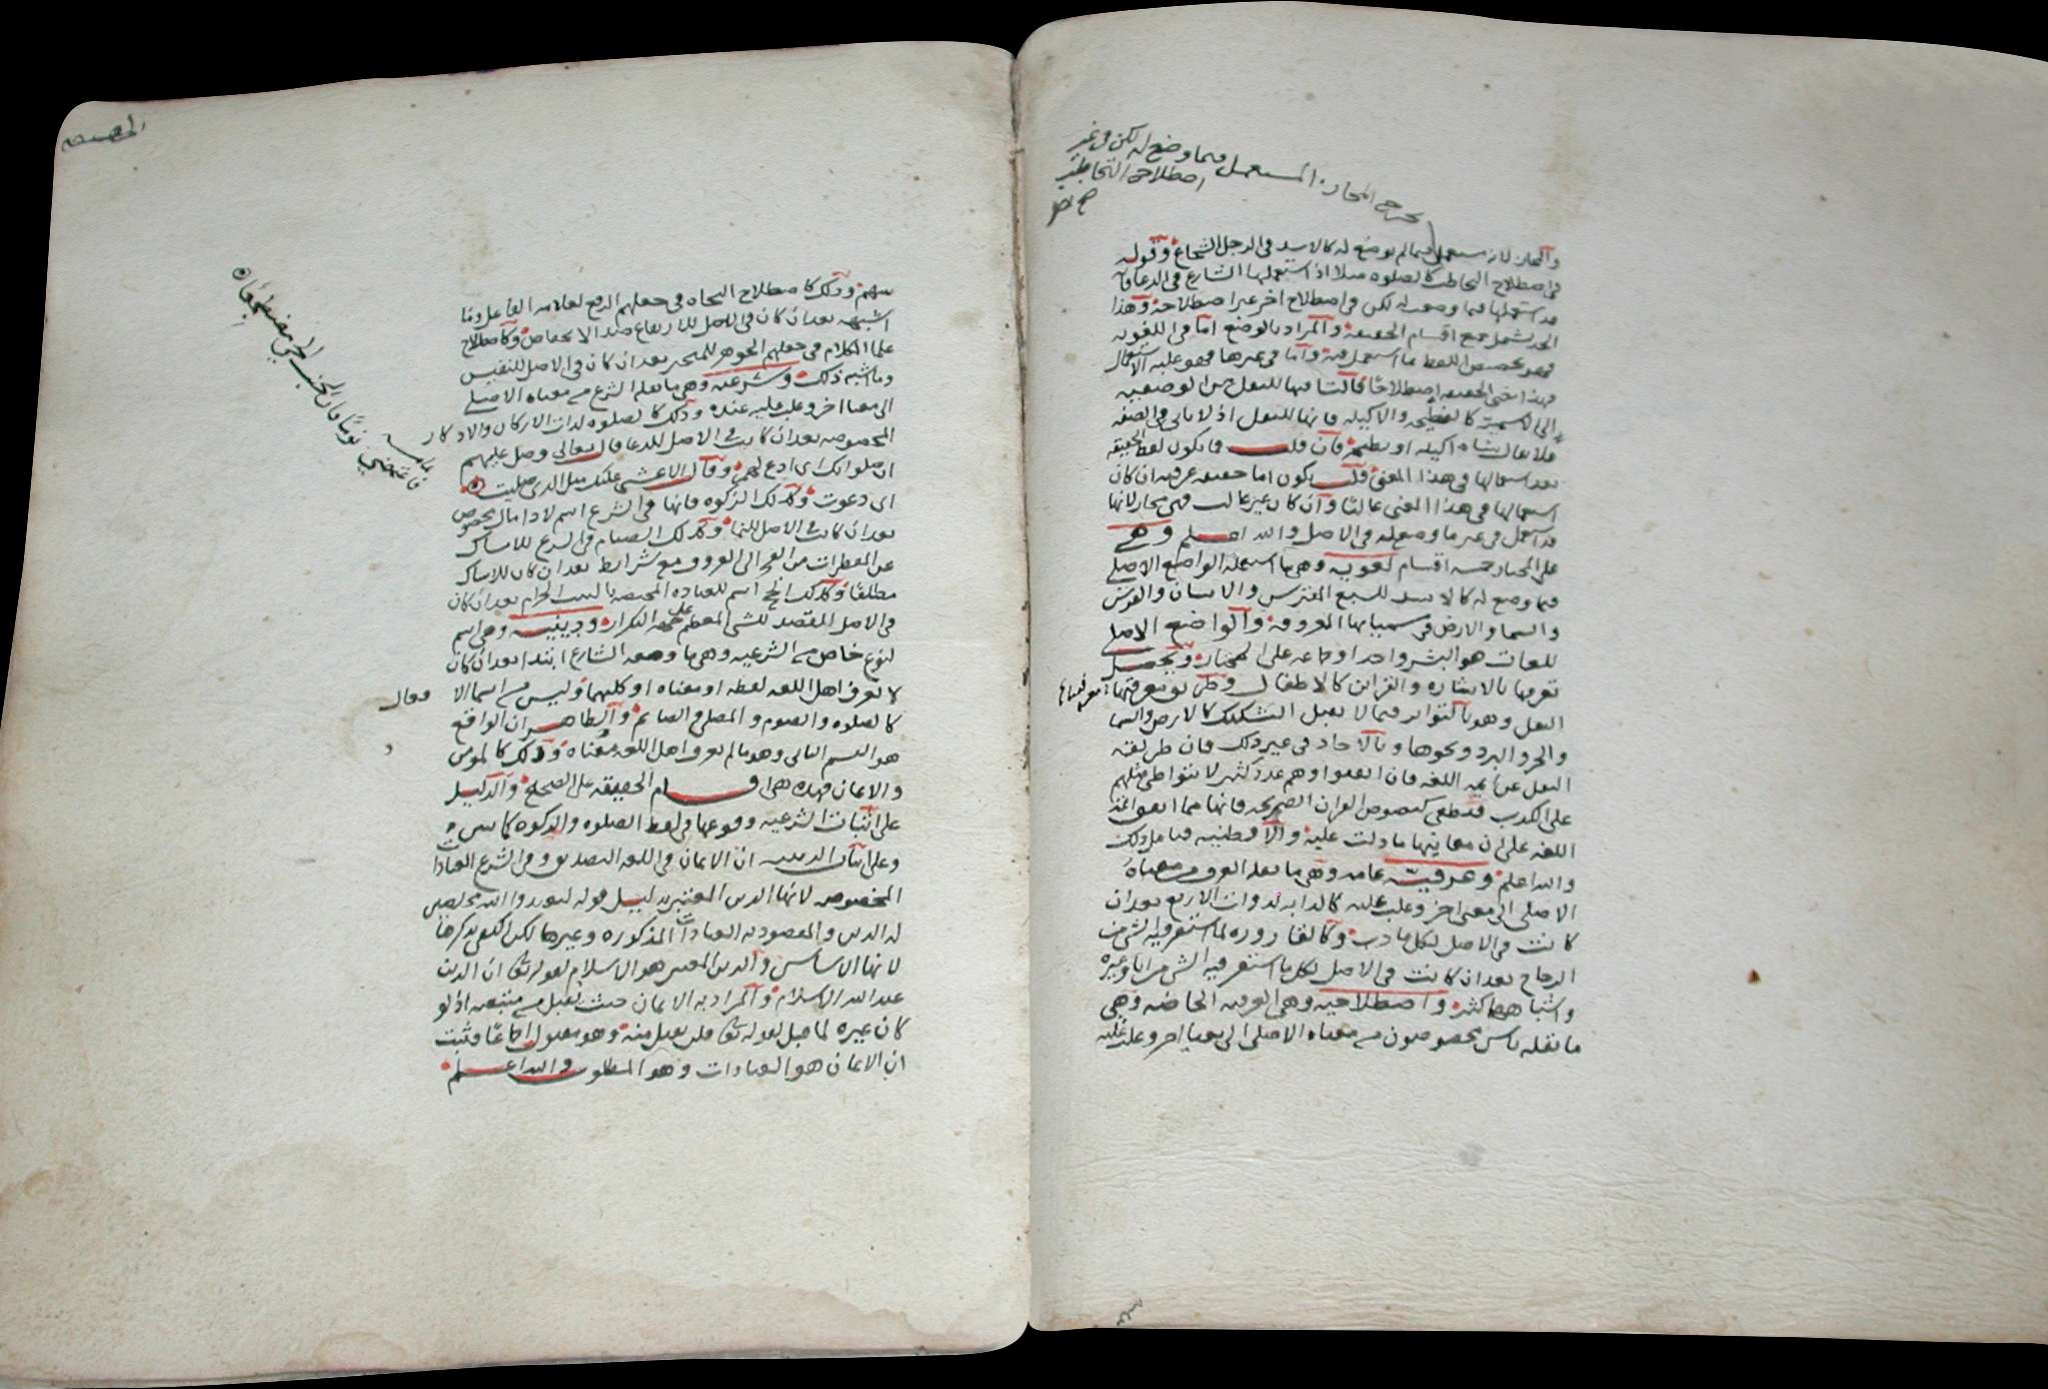 يخرج المجاز المستعمل فيما وضع له لكن في غير
اصطلاح التخاطب
صح اصل
والمجاز لانه مستعمل فيما لم يوضع له كالاسد في الرجل الشجاع وقوله
في اصطلاح التخاطب كالصلوه مثلا اذا استعملها الشارع في الدعا فانه
قد استعملها فيما وضعت له لكن في اصطلاح اخر غير اصطلاحه وهذا
الحد يشمل جميع اقسام الحقيقه والمراد بالوضع اما في اللغويه
فهو تخصيص اللفظ بما استعمل فيه واما في غيرها فهو غلبه الاستعمال
فهذا معنى الحقيقه اصطلاحا فالتا فيها للنقل من الوصفيه
الى الاسميه كالنطيحه والاكيله فانها للنقل اذ لا ياتي في الصفه
فلا يقال شاه اكيله او نطيحه فان قلت فما يكون لفظ الحقيقه
بعد استعمالها في هذا المعنى قلت يكون اما حقيقه عرفيه ان كان
استعمالها في هذا المعنى غالبا وان كان غير غالب فهي مجاز لانها
قد استعمل في غير ما وضع له في الاصل والله اعلم وهي
على المختار خمسه اقسام لغويه وهي ما استعمله الواضع الاصلي
فيما وضع له كالاسد للسبع المفترس والانسان والفرس
والسما والارض في مسمياتها المعروفه والواضع الاصلي
للغات هو البشر واحدا او جماعه على المختار ويحصل
تعريفها بالاشاره والقراين كالاطفال وطريق معرفتها
النقل وهو بالتواتر فيما لا يقبل التشكيك كالارض والسما
والحر والبرد ونحوها وبالاحاد في غير ذلك فان طريقته
النقل عن ايمه اللغه فان اتفقوا وهم عدد كثير لا يتواطى مثلهم
على الكذب فقطعي كنصوص القران الصريحه فانها مما اتفق ائمه
اللغه على ان معانيها ما دلت عليه والا فظنيه فتامل ذلك
والله اعلم وعرفيه عامه وهي ما نقله العرف من معناه
الاصلي الى معنى اخر وغلب عليه كالدابه لذوات الاربع بعد ان
كانت في الاصل لكل ما دب وكالقاروره لما استقر فيه الشي من
الزجاج بعد ان كانت في الاصل لكل ما استقر فيه الشي من انا وغيره
واشباههما كثير واصطلاحيه وهي العرفيه الخاصه وهي
ما نقله ناس مخصوصون من معناه الاصلي الى معنى اخر وغلب عليه
الحقيقه
بينهم وذلك كاصطلاح النحاه في جعلهم الرفع لعلامه الفاعل وما
اشبهه بعد ان كان في الاصل للارتفاع ضد الانخفاض وكاصطلاح
علما الكلام في جعلهم الجوهر للمتحيز بعد ان كان في الاصل للنفيس
وما اشبه ذلك وشرعيه وهي ما نقله الشرع من معناه الاصلي
الى معنى اخر وغلب عليه عنده وذلك كالصلوه لذات الاركان والاذكار
المخصوصه بعد ان كانت في الاصل للدعا قال تعالى وصل عليهم
ان صلواتك اي ادع لهم وقال الاعشى عليك مثل الذي صليت
فاغتمضي نوما فان لجنب المرء مضطجعا
اي دعوت وكذلك الزكوه فانها في الشرع اسم لاداء مال مخصوص
بعد ان كانت في الاصل للنما وكذلك الصيام في الشرع للامساك
عن المفطرات من الفجر الى الغروب مع شرايط بعد ان كان للامساك
مطلقا وكذلك الحج اسم للعباده المختصه بالبيت الحرام بعد ان كان
في الاصل للقصد للشي المعظم على جهه التكرار ودينيه وهي اسم
لنوع خاص من الشرعيه وهي ما وضعه الشارع ابتدا بعد ان كان
لا يعرف اهل اللغه لفظه او معناه او كليهما وليس من اسما الافعال
كالصلوه والصوم والمصلي والصايم والظاهر ان الواقع
هو القسم الثاني وهو ما لم يعرف اهل اللغه معناه وذلك كالمومن
والايمان فهذه هي اقسام الحقيقه على الصحيح والدليل
على اثبات الشرعيه وقوعها في لفظ الصلوه والزكوه كما بين
وعلى اثبات الدينيه ان الايمان في اللغه التصديق وفي الشرع العبادات
المخصوصه لانها الدين المعتبر بدليل قوله ليعبدوا الله مخلصين
له الدين والمقصود به العبادات المذكوره وغيرها لكن اكتفى بذكرها
لانها الاساس والدين المعتبر هو الاسلام لقوله تعالى ان الدين
عند الله الاسلام والمراد به الايمان حيث يقبل من مبتغيه اذ لو
كان غيره لما قبل لقوله تعالى فلن يقبل منه وهو مقبول اجماعا فثبت
ان الايمان هو العبادات وهو المطلوب والله اعلم